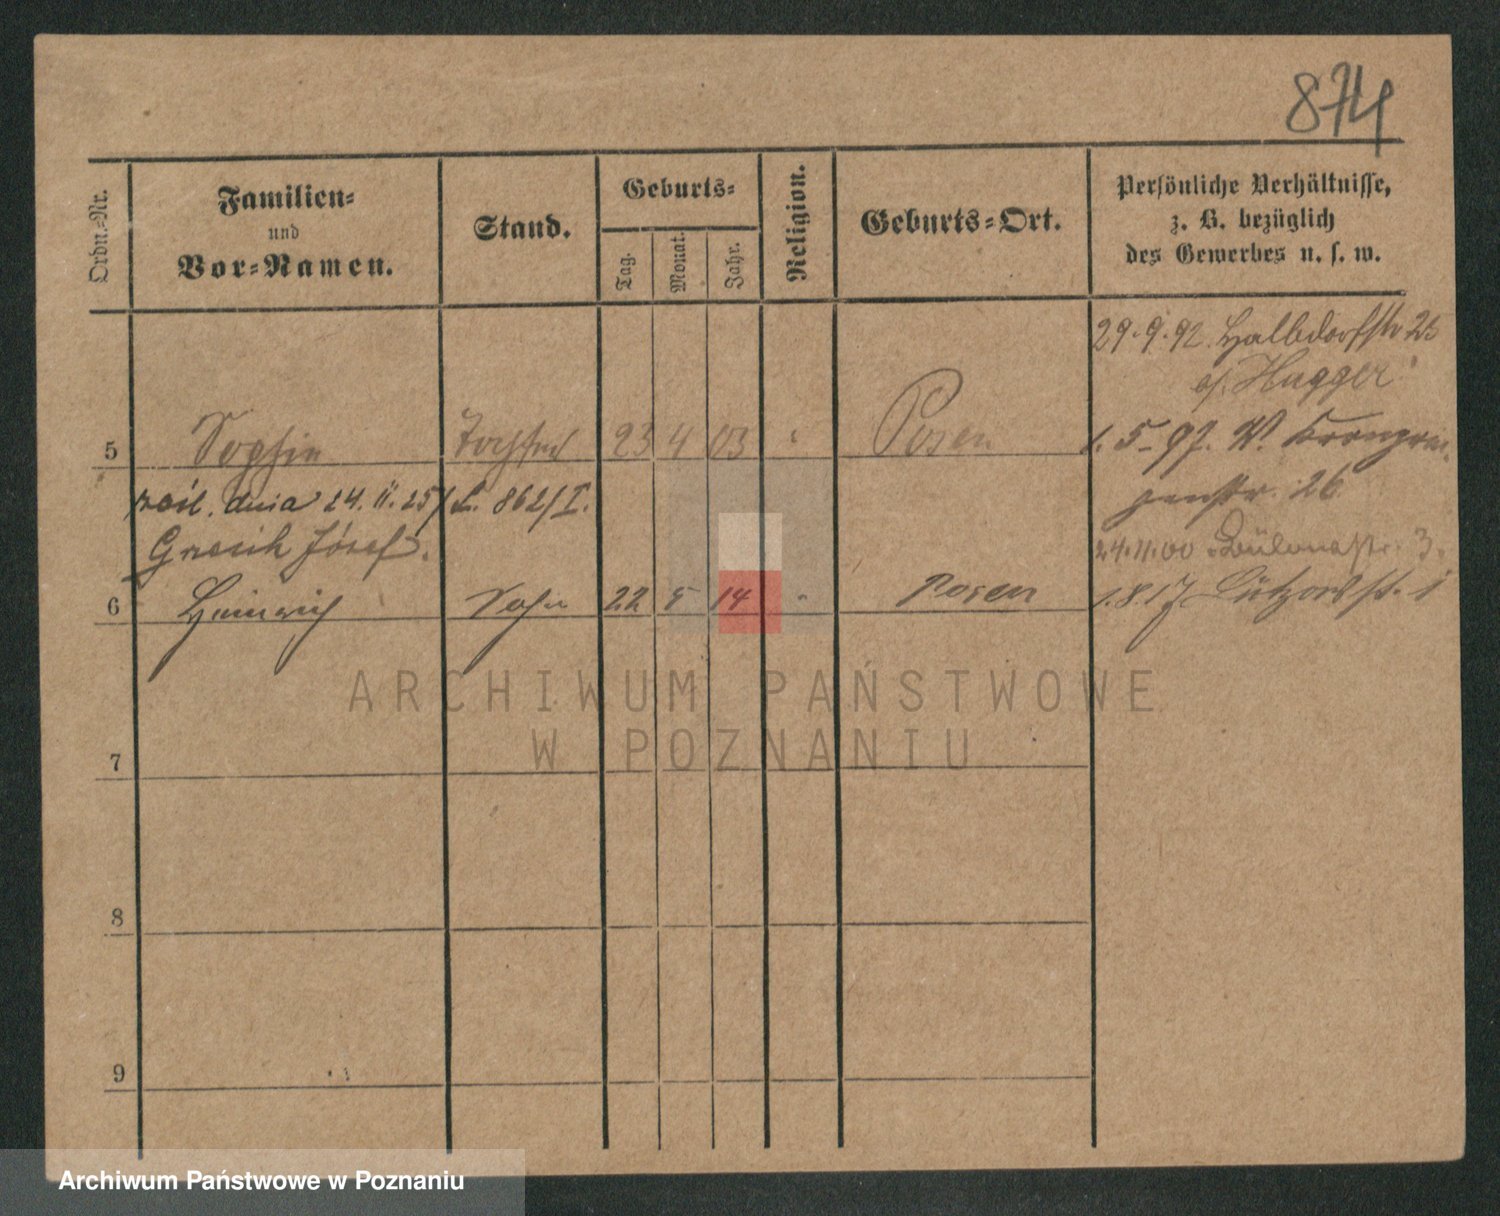 874
Ordn.-Nr.
Familien-
und
Vor-Namen.
Stand.
Geburts-
Tag.
Monat.
Jahr.
Religion.
Geburts-Ort.
Persönliche Verhältnisse,
z. B. bezüglich
des Gewerbes u. s. w.
29.9.92. Halbdorfstr
Hugger
5 Sophie Tochter 23 4 03 Posen
1.5.97. W. Kronprin
zenstr. 26
dnia 24.11.25 L. 862/I.
Józef.
24.11.00 Bülowstr. 3.
6 Heinrich Sohn 22 5 14 " Posen
1.8.17 Lützowstr. 1
7
8
9
ARCHIWUM PAŃSTWOWE
W POZNANIU
Archiwum Państwowe w Poznaniu